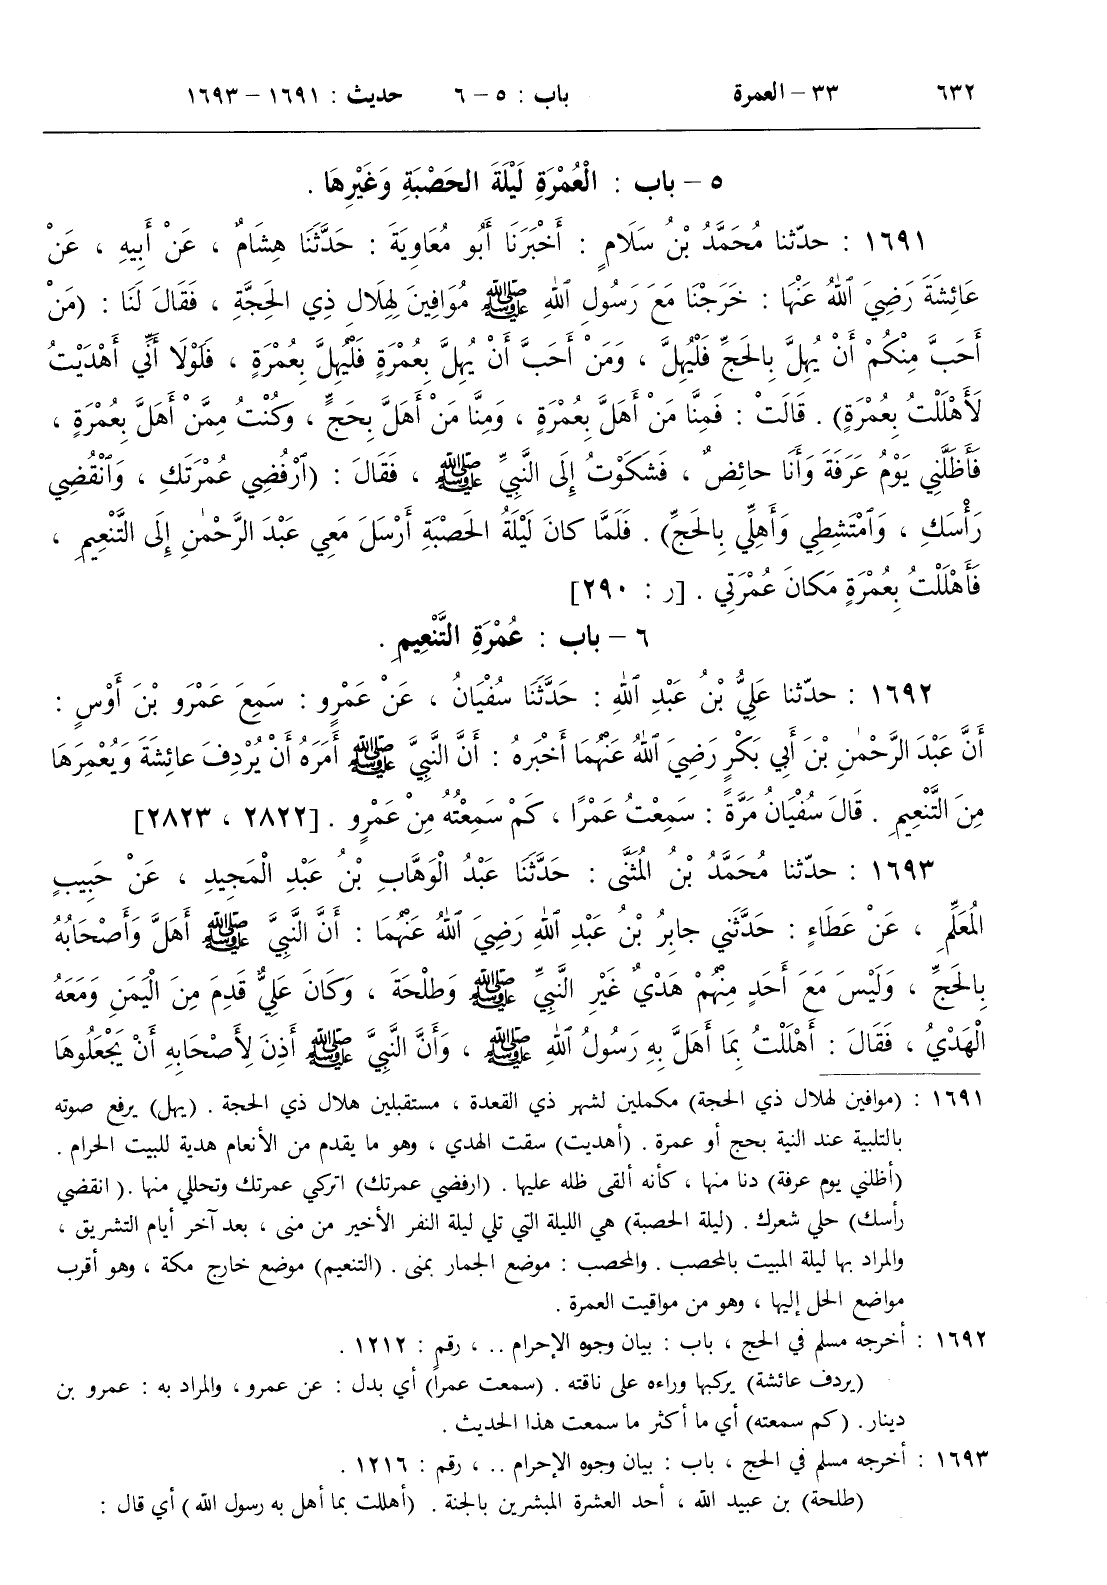 ٦٣٢ ٣٣ – العمرة باب : ٥ – ٦ حديث : ١٦٩١ – ١٦٩٣
٥ – باب : الْعُمْرَةِ لَيْلَةَ الحَصْبَةِ وَغَيْرِهَا .
١٦٩١ : حدّثنا مُحَمَّدُ بْنُ سَلَامٍ : أَخْبَرَنَا أَبُو مُعَاوِيَةَ : حَدَّثَنَا هِشَامٌ ، عَنْ أَبِيهِ ، عَنْ
عَائِشَةَ رَضِيَ ٱللهُ عَنْهَا : خَرَجْنَا مَعَ رَسُولِ ٱللهِ ﷺ مُوَافِينَ لِهِلَالِ ذِي الحَجَّةِ ، فَقَالَ لَنَا : (مَنْ
أَحَبَّ مِنْكُمْ أَنْ يُهِلَّ بِالحَجِّ فَلْيُهِلَّ ، وَمَنْ أَحَبَّ أَنْ يُهِلَّ بِعُمْرَةٍ فَلْيُهِلَّ بِعُمْرَةٍ ، فَلَوْلَا أَنِّي أَهْدَيْتُ
لَأَهْلَلْتُ بِعُمْرَةٍ) . قَالَتْ : فَمِنَّا مَنْ أَهَلَّ بِعُمْرَةٍ ، وَمِنَّا مَنْ أَهَلَّ بِحَجٍّ ، وَكُنْتُ مِمَّنْ أَهَلَّ بِعُمْرَةٍ ،
فَأَظَلَّنِي يَوْمُ عَرَفَةَ وَأَنَا حائِضٌ ، فَشَكَوْتُ إِلَى النَّبِيِّ ﷺ ، فَقَالَ : (ٱرْفُضِي عُمْرَتَكِ ، وَٱنْقُضِي
رَأْسَكِ ، وَٱمْتَشِطِي وَأَهِلِّي بِالحَجِّ) . فَلَمَّا كانَ لَيْلَةُ الحَصْبَةِ أَرْسَلَ مَعِي عَبْدَ الرَّحْمٰنِ إِلَى التَّنْعِيمِ ،
فَأَهْلَلْتُ بِعُمْرَةٍ مَكانَ عُمْرَتِي . [ر : ٢٩٠]
٦ – باب : عُمْرَةِ التَّنْعِيمِ .
١٦٩٢ : حدّثنا عَلِيُّ بْنُ عَبْدِ ٱللهِ : حَدَّثَنَا سُفْيَانُ ، عَنْ عَمْرٍو : سَمِعَ عَمْرَو بْنَ أَوْسٍ :
أَنَّ عَبْدَ الرَّحْمٰنِ بْنَ أَبِي بَكْرٍ رَضِيَ ٱللهُ عَنْهُمَا أَخْبَرَهُ : أَنَّ النَّبِيَّ ﷺ أَمَرَهُ أَنْ يُرْدِفَ عائِشَةَ وَيُعْمِرَهَا
مِنَ التَّنْعِيمِ . قَالَ سُفْيَانُ مَرَّةً : سَمِعْتُ عَمْرًا ، كَمْ سَمِعْتُهُ مِنْ عَمْرٍو . [٢٨٢٢ ، ٢٨٢٣]
١٦٩٣ : حدّثنا مُحَمَّدُ بْنُ المُثَنَّى : حَدَّثَنَا عَبْدُ الْوَهَّابِ بْنُ عَبْدِ الْمَجِيدِ ، عَنْ حَبِيبٍ
المُعَلِّمِ ، عَنْ عَطَاءٍ : حَدَّثَنِي جابِرُ بْنُ عَبْدِ ٱللهِ رَضِيَ ٱللهُ عَنْهُمَا : أَنَّ النَّبِيَّ ﷺ أَهَلَّ وَأَصْحَابُهُ
بِالحَجِّ ، وَلَيْسَ مَعَ أَحَدٍ مِنْهُمْ هَدْيٌ غَيْرِ النَّبِيِّ ﷺ وَطَلْحَةَ ، وَكَانَ عَلِيٌّ قَدِمَ مِنَ الْيَمَنِ وَمَعَهُ
الْهَدْيُ ، فَقَالَ : أَهْلَلْتُ بِمَا أَهَلَّ بِهِ رَسُولُ ٱللهِ ﷺ ، وَأَنَّ النَّبِيَّ ﷺ أَذِنَ لِأَصْحَابِهِ أَنْ يَجْعَلُوهَا
١٦٩١ : (موافين لهلال ذي الحجة) مكملين لشهر ذي القعدة ، مستقبلين هلال ذي الحجة . (يهل) يرفع صوته
بالتلبية عند النية بحج أو عمرة . (أهديت) سقت الهدي ، وهو ما يقدم من الأنعام هدية للبيت الحرام .
(أظلني يوم عرفة) دنا منها ، كأنه ألقى ظله عليها . (ارفضي عمرتك) اتركي عمرتك وتحللي منها .( انقضي
رأسك) حلي شعرك . (ليلة الحصبة) هي الليلة التي تلي ليلة النفر الأخير من منى ، بعد آخر أيام التشريق ،
والمراد بها ليلة المبيت بالمحصب . والمحصب : موضع الجمار بمنى . (التنعيم) موضع خارج مكة ، وهو أقرب
مواضع الحل إليها ، وهو من مواقيت العمرة .
١٦٩٢ : أخرجه مسلم في الحج ، باب : بيان وجوه الإحرام .. ، رقم : ١٢١٢ .
(يردف عائشة) يركبها وراءه على ناقته . (سمعت عمراً) أي بدل : عن عمرو ، والمراد به : عمرو بن
دينار. (كم سمعته) أي ما أكثر ما سمعت هذا الحديث .
١٦٩٣ : أخرجه مسلم في الحج ، باب : بيان وجوه الإحرام .. ، رقم : ١٢١٦ .
(طلحة) بن عبيد الله ، أحد العشرة المبشرين بالجنة . (أهللت بما أهل به رسول الله ) أي قال :